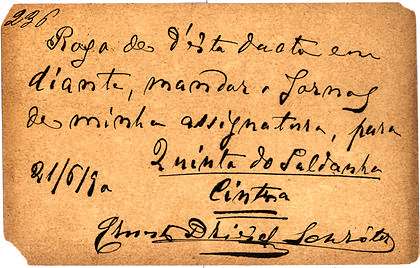 236
Rogo de d'esta data em
diante, mandar o Jornal
de minha assignatura, para
Quinta do Saldanha
21/6/90
Cintra
Ernesto Driesel Schröter